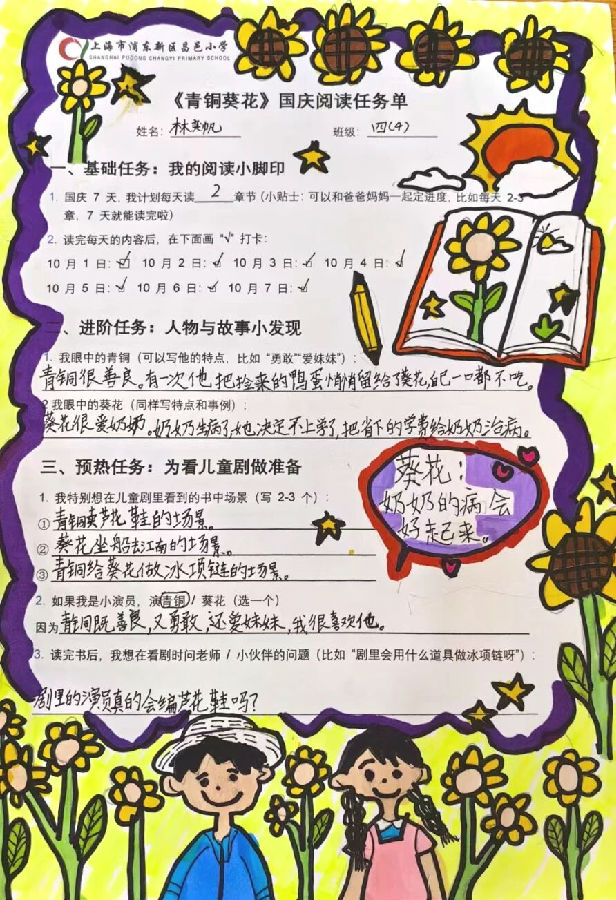 上海市浦东新区昌邑小学
SHANGHAI PUDONG CHANGYI PRIMARY SCHOOL
《青铜葵花》国庆阅读任务单
姓名：林奕帆 班级：四(4)
一、基础任务：我的阅读小脚印
1. 国庆 7 天，我计划每天读 2 章节（小贴士：可以和爸爸妈妈一起定进度，比如每天 2-3
章，7 天就能读完啦）
2. 读完每天的内容后，在下面画“√”打卡：
10 月 1 日：√ 10 月 2 日：√ 10 月 3 日：√ 10 月 4 日：√
10 月 5 日：√ 10 月 6 日：√ 10 月 7 日：√
二、进阶任务：人物与故事小发现
1. 我眼中的青铜（可以写他的特点，比如“勇敢”“爱妹妹”）：
青铜很善良。有一次他把捡来的鸭蛋悄悄留给了葵花,自己一口都不吃。
2 我眼中的葵花（同样写特点和事例）：
葵花很爱奶奶。奶奶生病了,她决定不上学了,把省下的学费给奶奶治病。
三、预热任务：为看儿童剧做准备
1. 我特别想在儿童剧里看到的书中场景（写 2-3 个）：
①青铜卖芦花鞋的场景。
②葵花坐船去江南的场景。
③青铜给葵花做冰项链的场景。
葵花：
奶奶的病会
好起来。
2. 如果我是小演员，演青铜 / 葵花（选一个）
因为青铜既善良，又勇敢，还爱妹妹，我很喜欢他。
3. 读完书后，我想在看剧时问老师 / 小伙伴的问题（比如“剧里会用什么道具做冰项链呀”）：
剧里的演员真的会编芦花鞋吗？